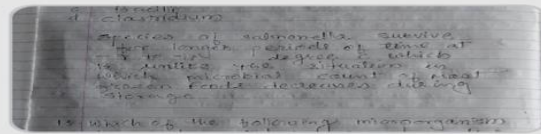 d clostridium
species of salmonella survive
for longer periods of time at
degree c which
is unlike the situation in
which microbial count of most
frozen foods decreases during
storage
which of the following microorganism